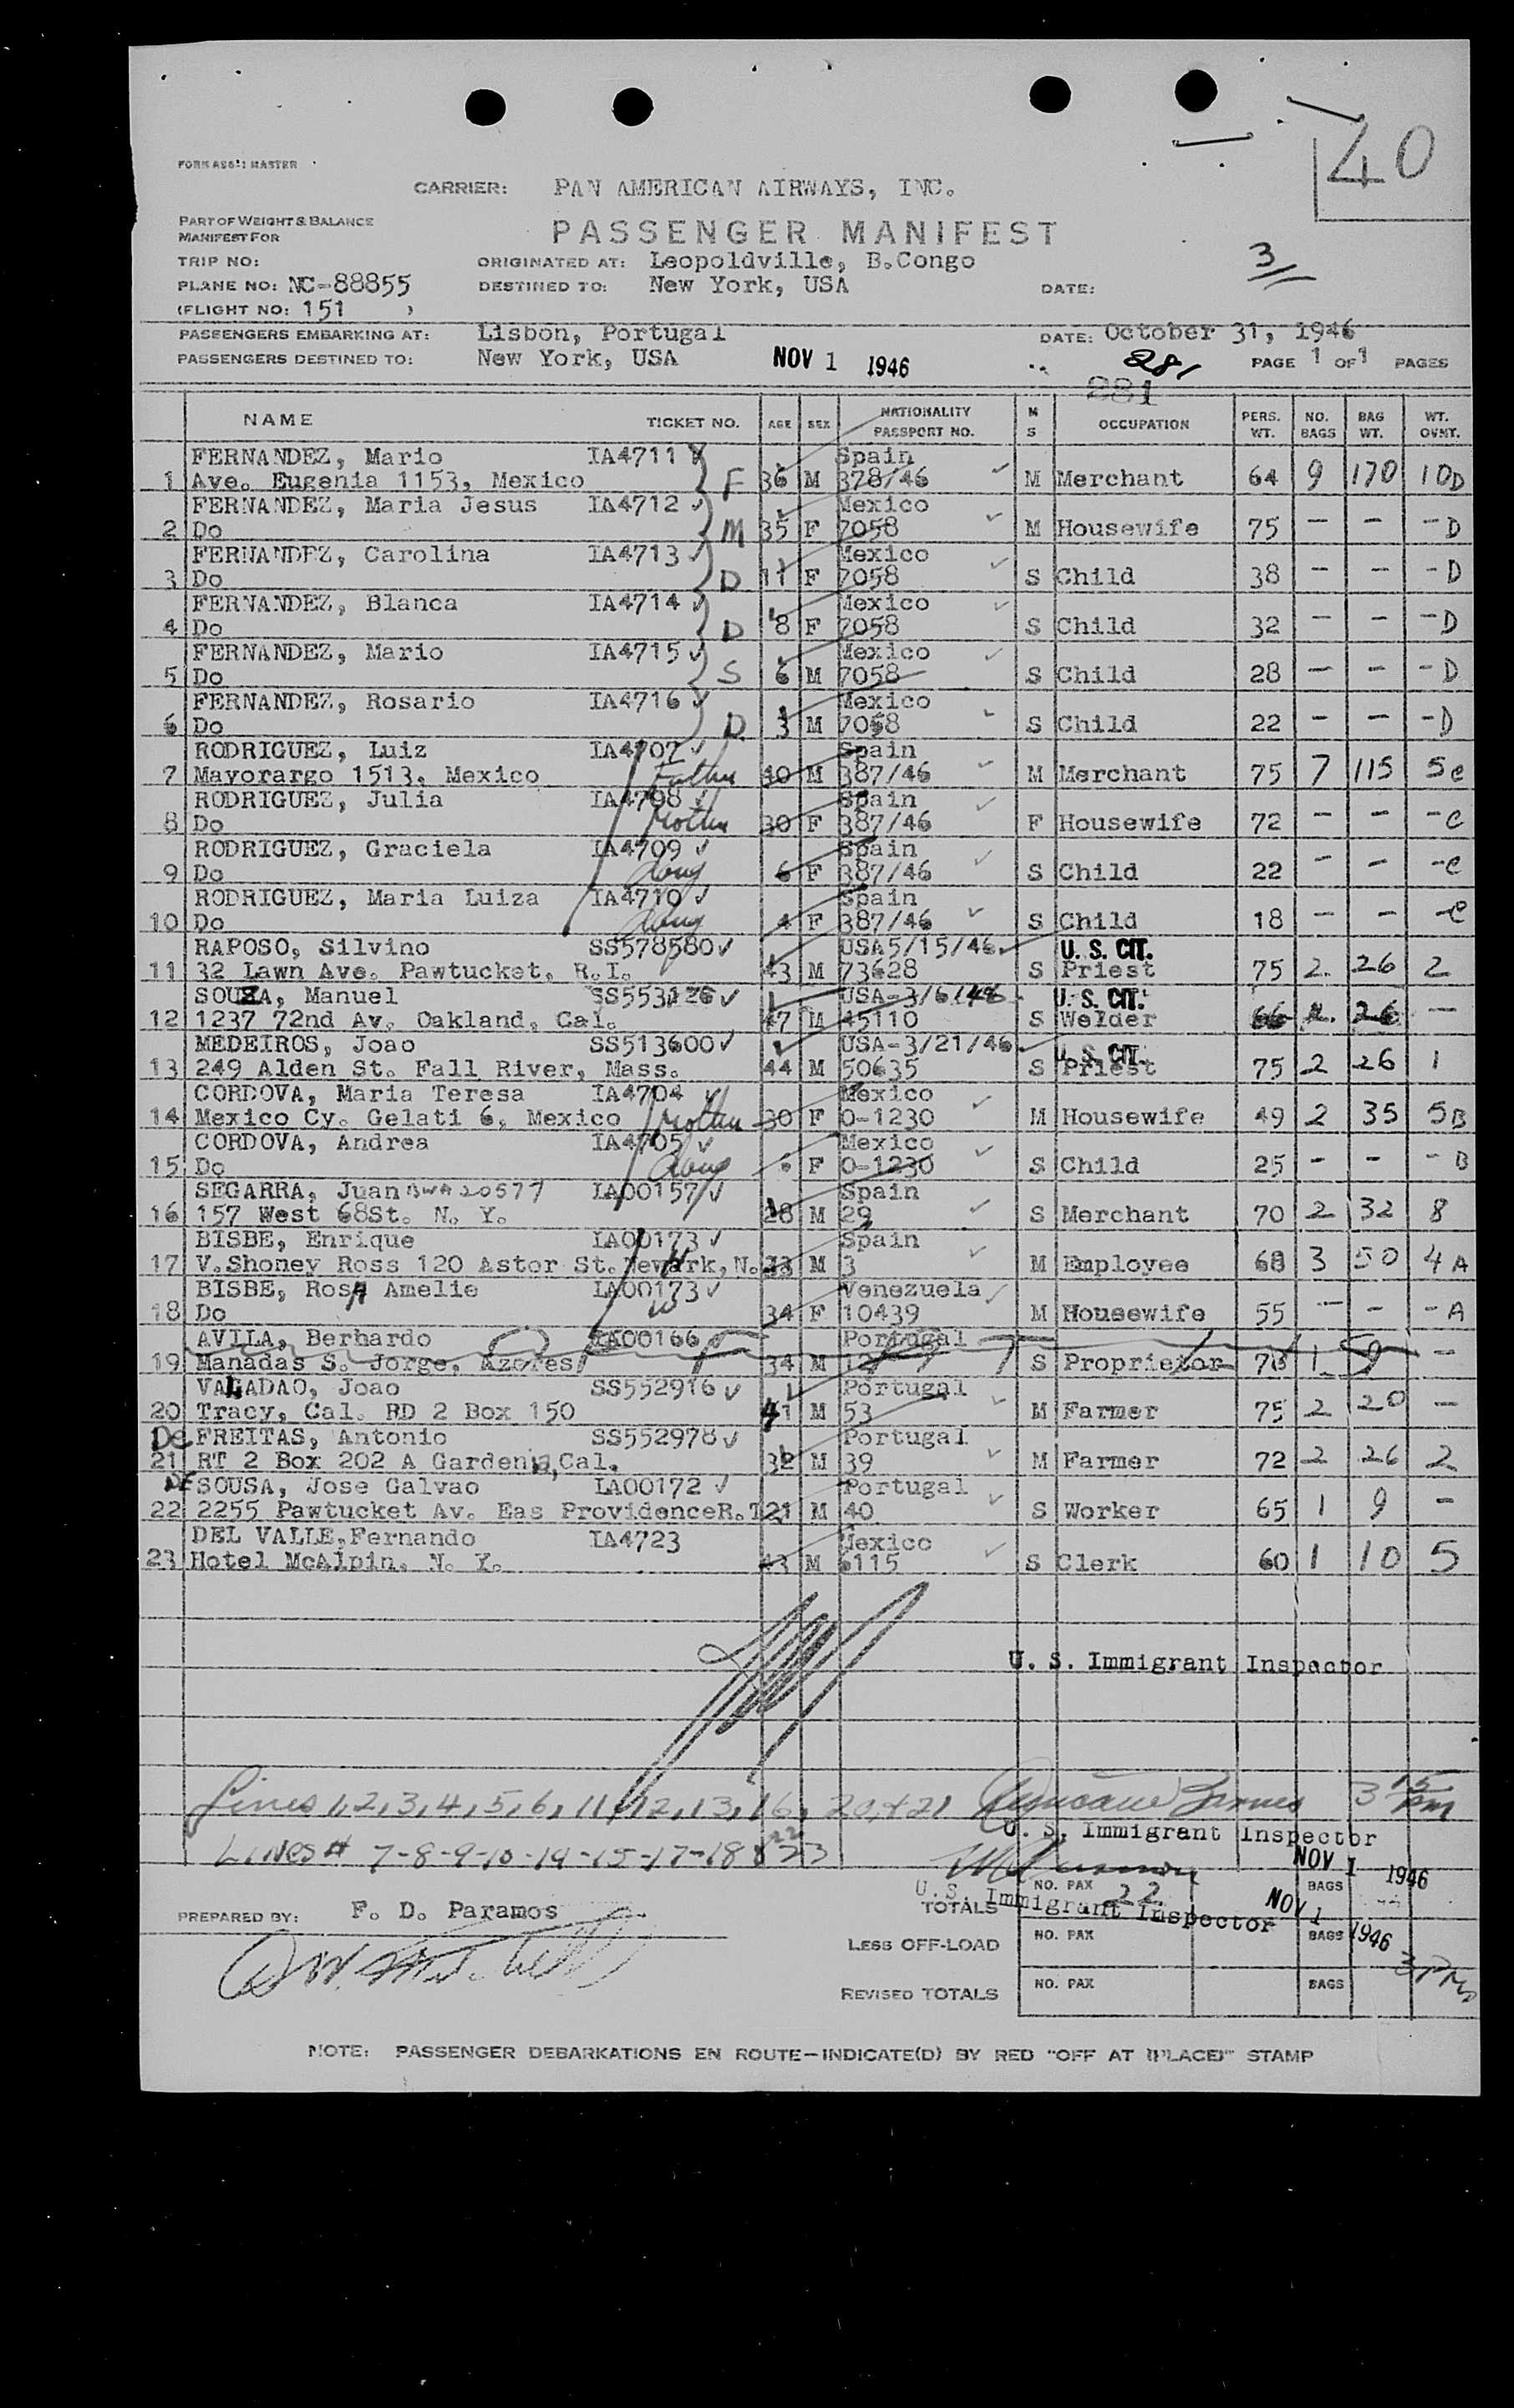 40
FORM
MASTER
CARRIER: PAN AMERICAN AIRWAYS, INC.
PART OF WEIGHT & BALANCE
MANIFEST FOR
PASSENGER MANIFEST
3
TRIP NO: ORIGINATED AT: Leopoldville, B.Congo
PLANE NO: NC-88855 DESTINED TO: New York, USA DATE:
(FLIGHT NO: 151 )
PASSENGERS EMBARKING AT: Lisbon, Portugal DATE: October 31, 1946
PASSENGERS DESTINED TO: New York, USA NOV 1 1946 281 PAGE 1 OF 1 PAGES
281
NAME TICKET NO. AGE SEX NATIONALITY PASSPORT NO. M S OCCUPATION PERS. WT. NO. BAGS BAG WT. WT. OVNT.
FERNANDEZ, Mario IA4711 Spain
1 Ave. Eugenia 1153, Mexico F 36 M 378/46 M Merchant 64 9 170 10D
FERNANDEZ, Maria Jesus IA4712 Mexico
2 Do M 35 F 7058 M Housewife 75 - - -D
FERNANDEZ, Carolina IA4713 Mexico
3 Do D 11 F 7058 S Child 38 - - -D
FERNANDEZ, Blanca IA4714 Mexico
4 Do D 8 F 7058 S Child 32 - - -D
FERNANDEZ, Mario IA4715 Mexico
5 Do S 6 M 7058 S Child 28 - - -D
FERNANDEZ, Rosario IA4716 Mexico
6 Do D 3 M 7058 S Child 22 - - -D
RODRIGUEZ, Luiz IA4707 Spain
7 Mayorargo 1513, Mexico Father 40 M 387/46 M Merchant 75 7 115 5C
RODRIGUEZ, Julia IA4708 Spain
8 Do Mother 30 F 387/46 F Housewife 72 - - -C
RODRIGUEZ, Graciela IA4709 Spain
9 Do daug 6 F 387/46 S Child 22 - - -C
RODRIGUEZ, Maria Luiza IA4710 Spain
10 Do daug 4 F 387/46 S Child 18 - - -C
RAPOSO, Silvino SS578580 USA5/15/46 U. S. CIT.
11 32 Lawn Ave. Pawtucket, R.I. 43 M 73628 S Priest 75 2 26 2
SOUZA, Manuel SS553126 USA-3/6/46 U. S. CIT.
12 1237 72nd Av. Oakland, Cal. 47 M 45110 S Welder 66 2 26 -
MEDEIROS, Joao SS513600 USA-3/21/46 U. S. CIT.
13 249 Alden St. Fall River, Mass. 44 M 50635 S Priest 75 2 26 1
CORDOVA, Maria Teresa IA4704 Mexico
14 Mexico Cy. Gelati 6, Mexico Mother 30 F 0-1230 M Housewife 49 2 35 5B
CORDOVA, Andrea IA4705 Mexico
15 Do daug F 0-1230 S Child 25 - - -B
SEGARRA, Juan 20577 IA00157 Spain
16 157 West 68St. N. Y. 28 M 29 S Merchant 70 2 32 8
BISBE, Enrique IA00173 Spain
17 V.Shoney Ross 120 Astor St. Newark, N. H 33 M 3 M Employee 68 3 50 4A
BISBE, RosA Amelie IA00173 Venezuela
18 Do W 34 F 10439 M Housewife 55 - - -A
AVILA, Berhardo IA00166 Portugal
19 Manadas S. Jorge, Azores 34 M S Proprietor 1 9 -
VALADAO, Joao SS552916 Portugal
20 Tracy, Cal. RD 2 Box 150 41 M 53 M Farmer 75 2 20 -
De FREITAS, Antonio SS552978 Portugal
21 RT 2 Box 202 A Gardena, Cal. 32 M 39 M Farmer 72 2 26 2
DE SOUSA, Jose Galvao IA00172 Portugal
22 2255 Pawtucket Av. Eas ProvidenceR.I 21 M 40 S Worker 65 1 9 -
DEL VALLE, Fernando IA4723 Mexico
23 Hotel McAlpin, N. Y. 43 M 6115 S Clerk 60 1 10 5
U. S. Immigrant Inspector
Lines 1,2,3,4,5,6,11,12,13,16, 20,+21 3 15 pm
U. S. Immigrant Inspector
Lines # 7-8-9-10-14-15-17-18 22 23
NOV 1 1946
PREPARED BY: F. D. Paramos
U. S. Immigrant Inspector
TOTALS NO. PAX 22 BAGS
NOV 1 1946
3 PM
LESS OFF-LOAD NO. PAX BAGS
REVISED TOTALS NO. PAX BAGS
NOTE: PASSENGER DEBARKATIONS EN ROUTE—INDICATE(D) BY RED "OFF AT (PLACE)" STAMP